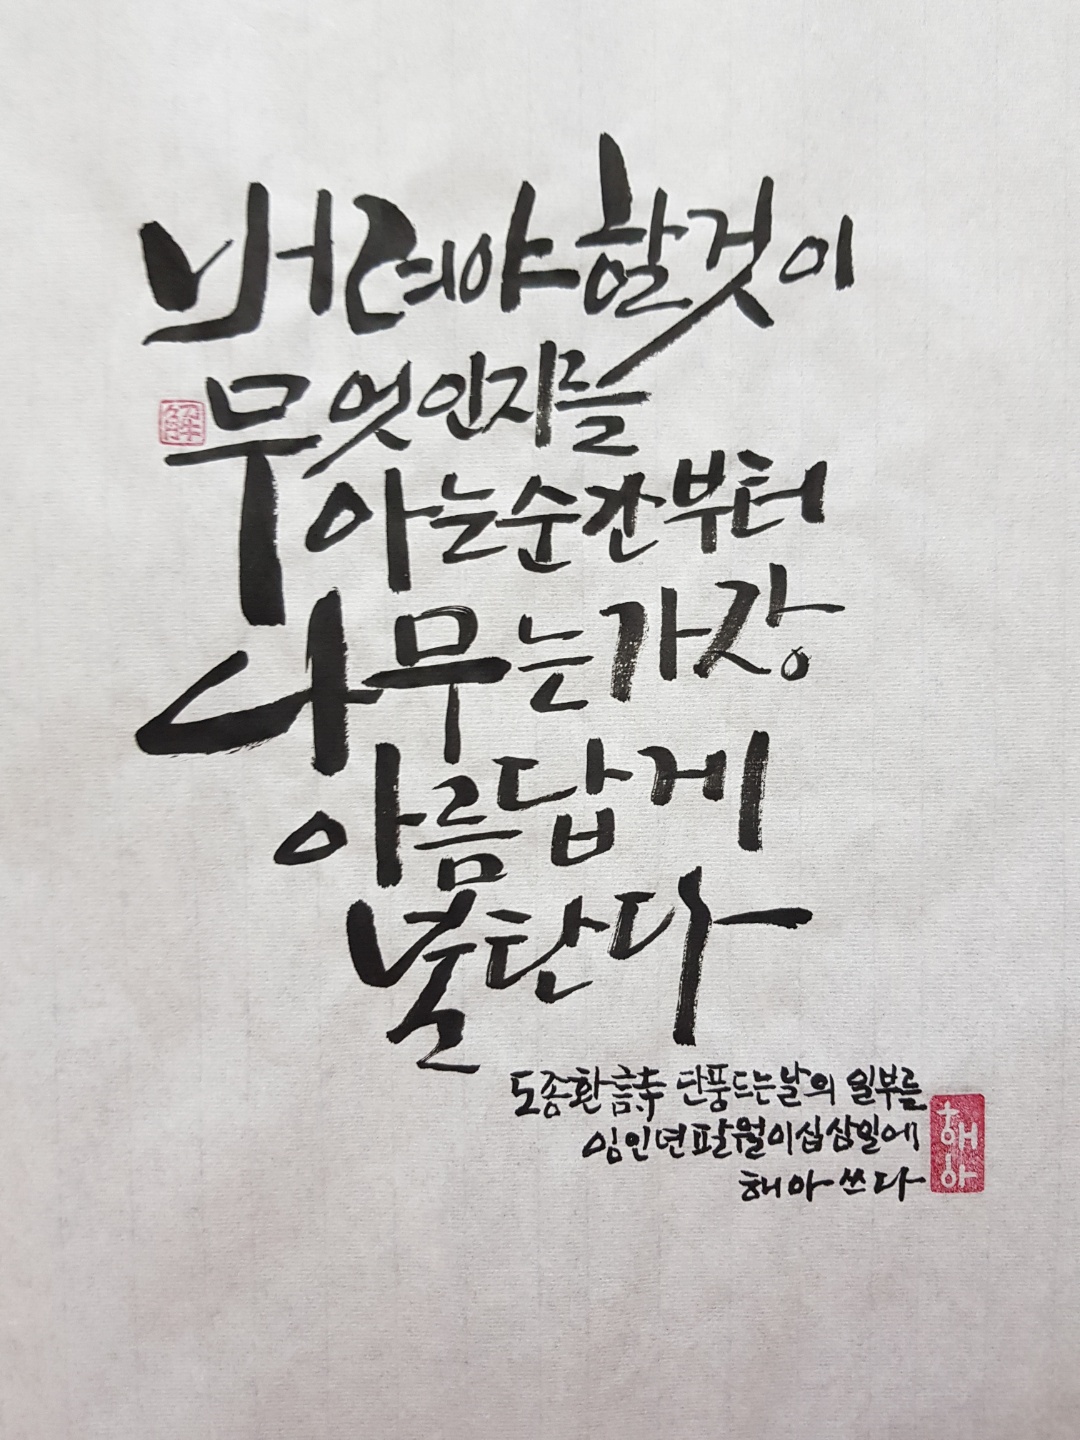 버려야 할것이
무엇인지를
아는 순간부터
나무는 가장
아름답게
불탄다
도종환 詩 단풍드는날의 일부를
임인년 팔월 이십삼일에
해아 쓰다
해아